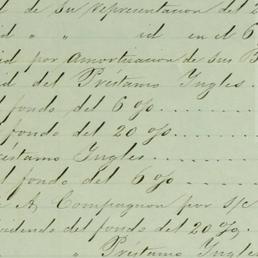 de Su Representacion del 2
id " " id en el 6
id por Amortizacion de Sus B
id del Préstamo Ingles.
l fondo del 6 %
fondo del 20 %
réstamo Ingles
l fondo del 6 %
A. Compagnon por s/c
idendo del fondo del 20 %
" Préstamo Ingles